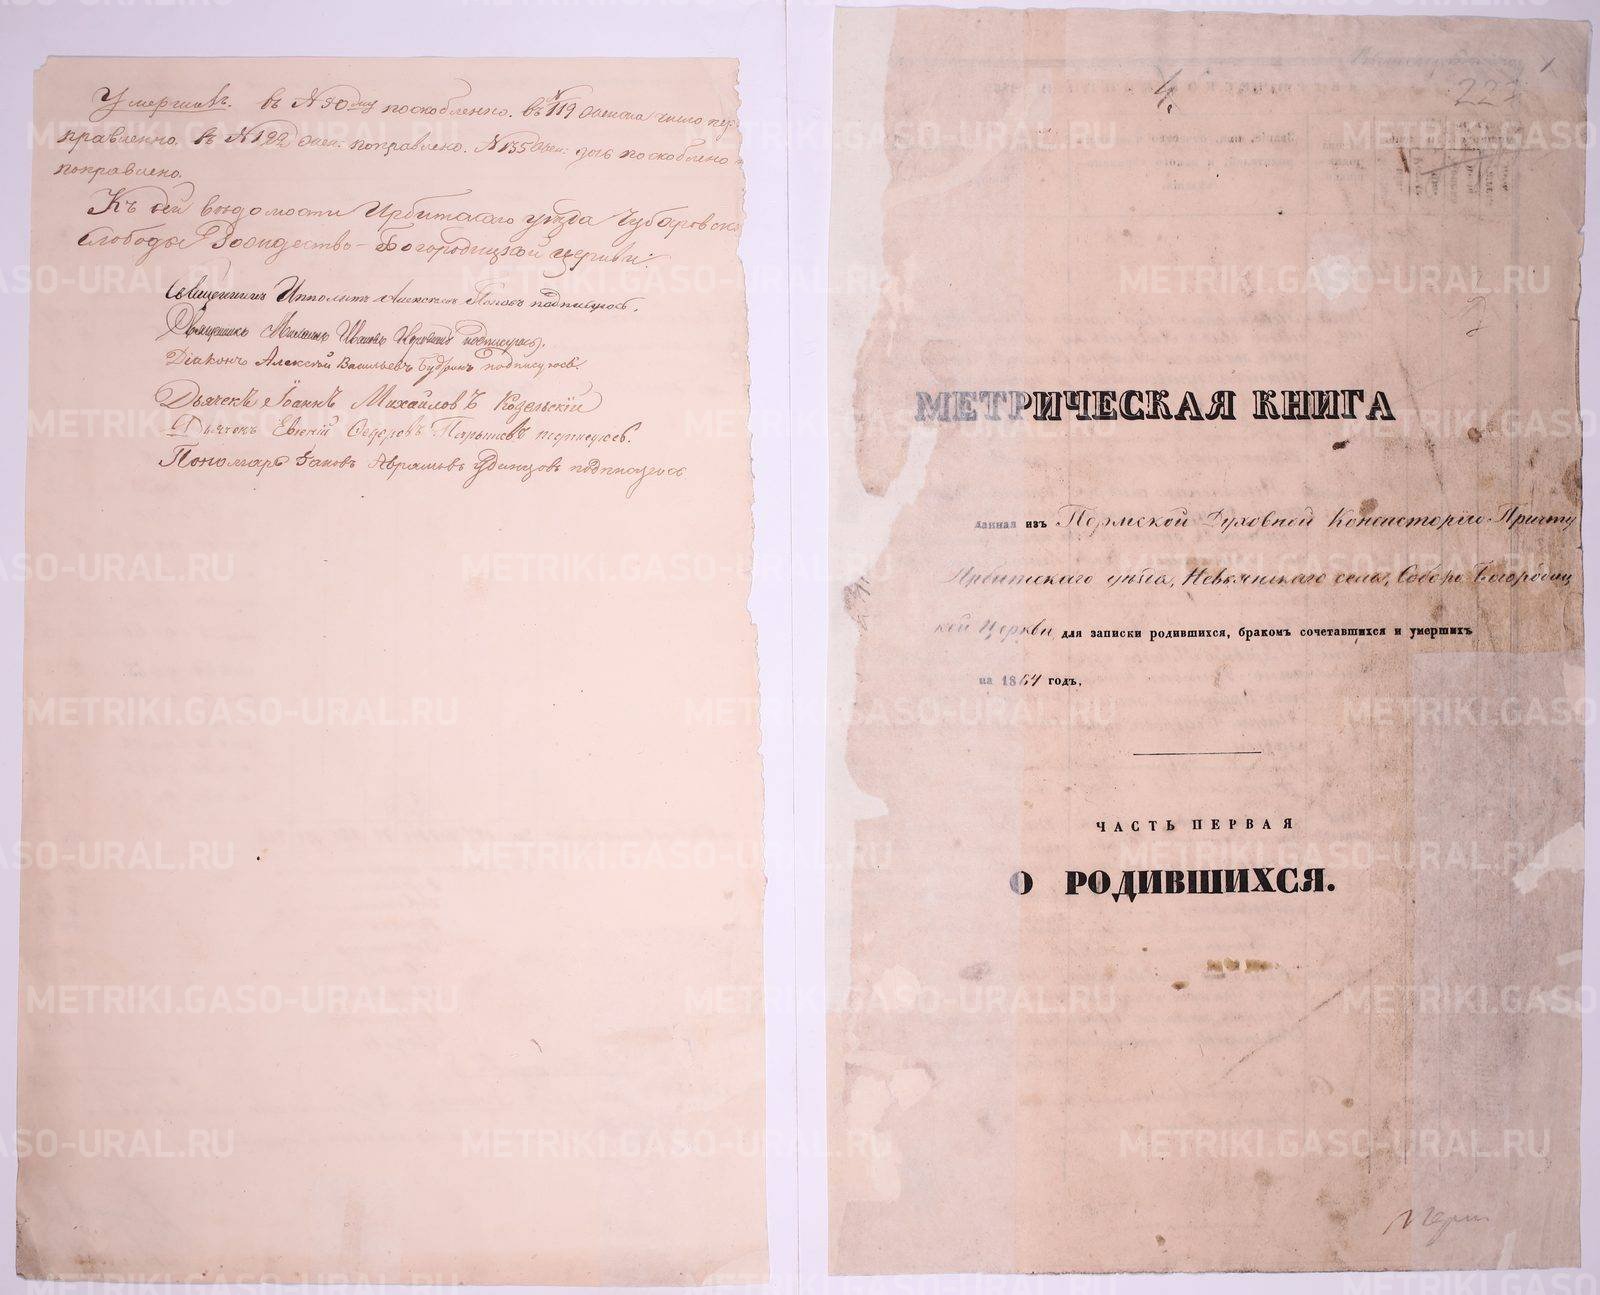 Умершихъ. въ № 90 му поскобленно. въ № 119 имени число пе
правленно. въ № 122 поправлено. № 135 дочь поскоблено
поправлено.
Къ сей ведомости Ирбитскаго уѣзда Чубаровск
слободы Рождество-Богородицкой церкви:
Священникъ Ипполитъ Алексеевъ Поповъ подписуюсь.
Священникъ Иванов подписуюсь.
Діаконъ Алексѣй Васильевъ Будринъ подписуюсь.
Дьячекъ Іоаннъ Михайловъ Козельскій
Дьячекъ Евгеній Федоровъ подписуюсь.
Пономарь Іаковъ Аврамовъ Удинцовъ подписуюсь
4.
227
1
МЕТРИЧЕСКАЯ КНИГА
данная изъ Пермской Духовной Консисторіи Причту
Ирбитскаго уѣзда, Невьянскаго села, Соборо Богородиц
кой Церкви для записки родившихся, бракомъ сочетавшихся и умершихъ
на 1864 годъ.
ЧАСТЬ ПЕРВАЯ
О РОДИВШИХСЯ.
METRIKI.GASO-URAL.RU